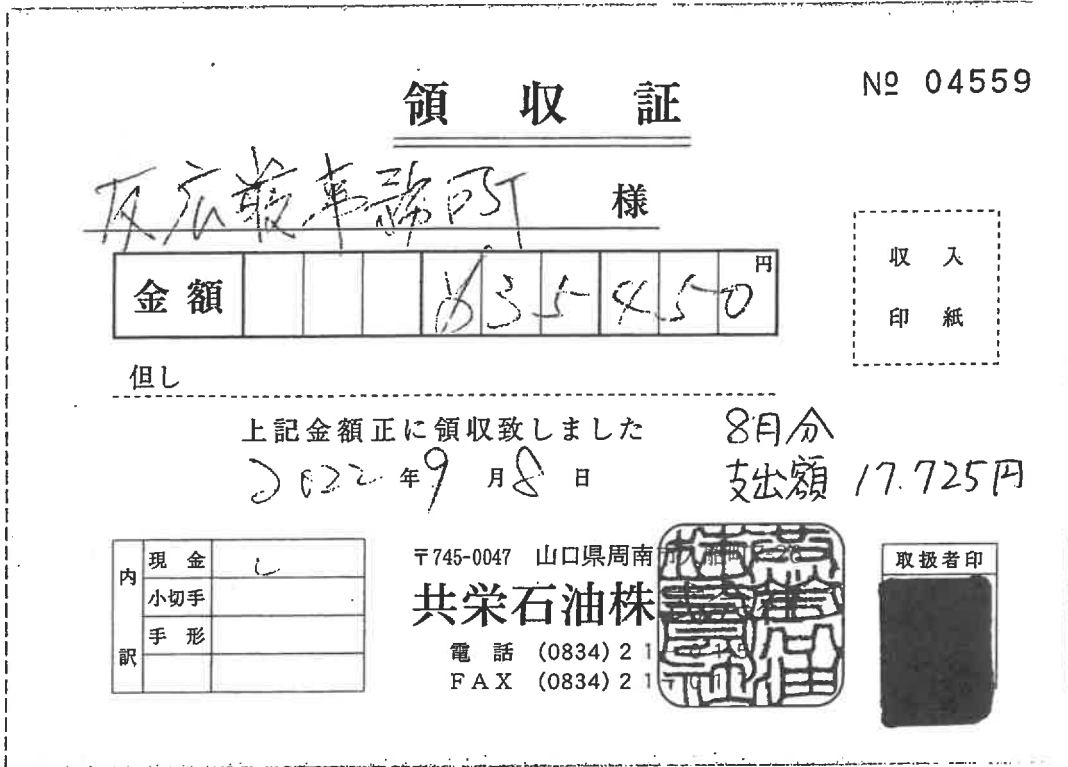 領収証
№ 04559
友広巌事務所 様
収入
印紙
金額 ¥35450 円
但し
上記金額正に領収致しました
8月分
2022年9月8日
支出額 17.725円
内訳
現金 レ
小切手
手形
〒745-0047 山口県周南市
共栄石油株
電話 (0834)21
FAX (0834)21
取扱者印